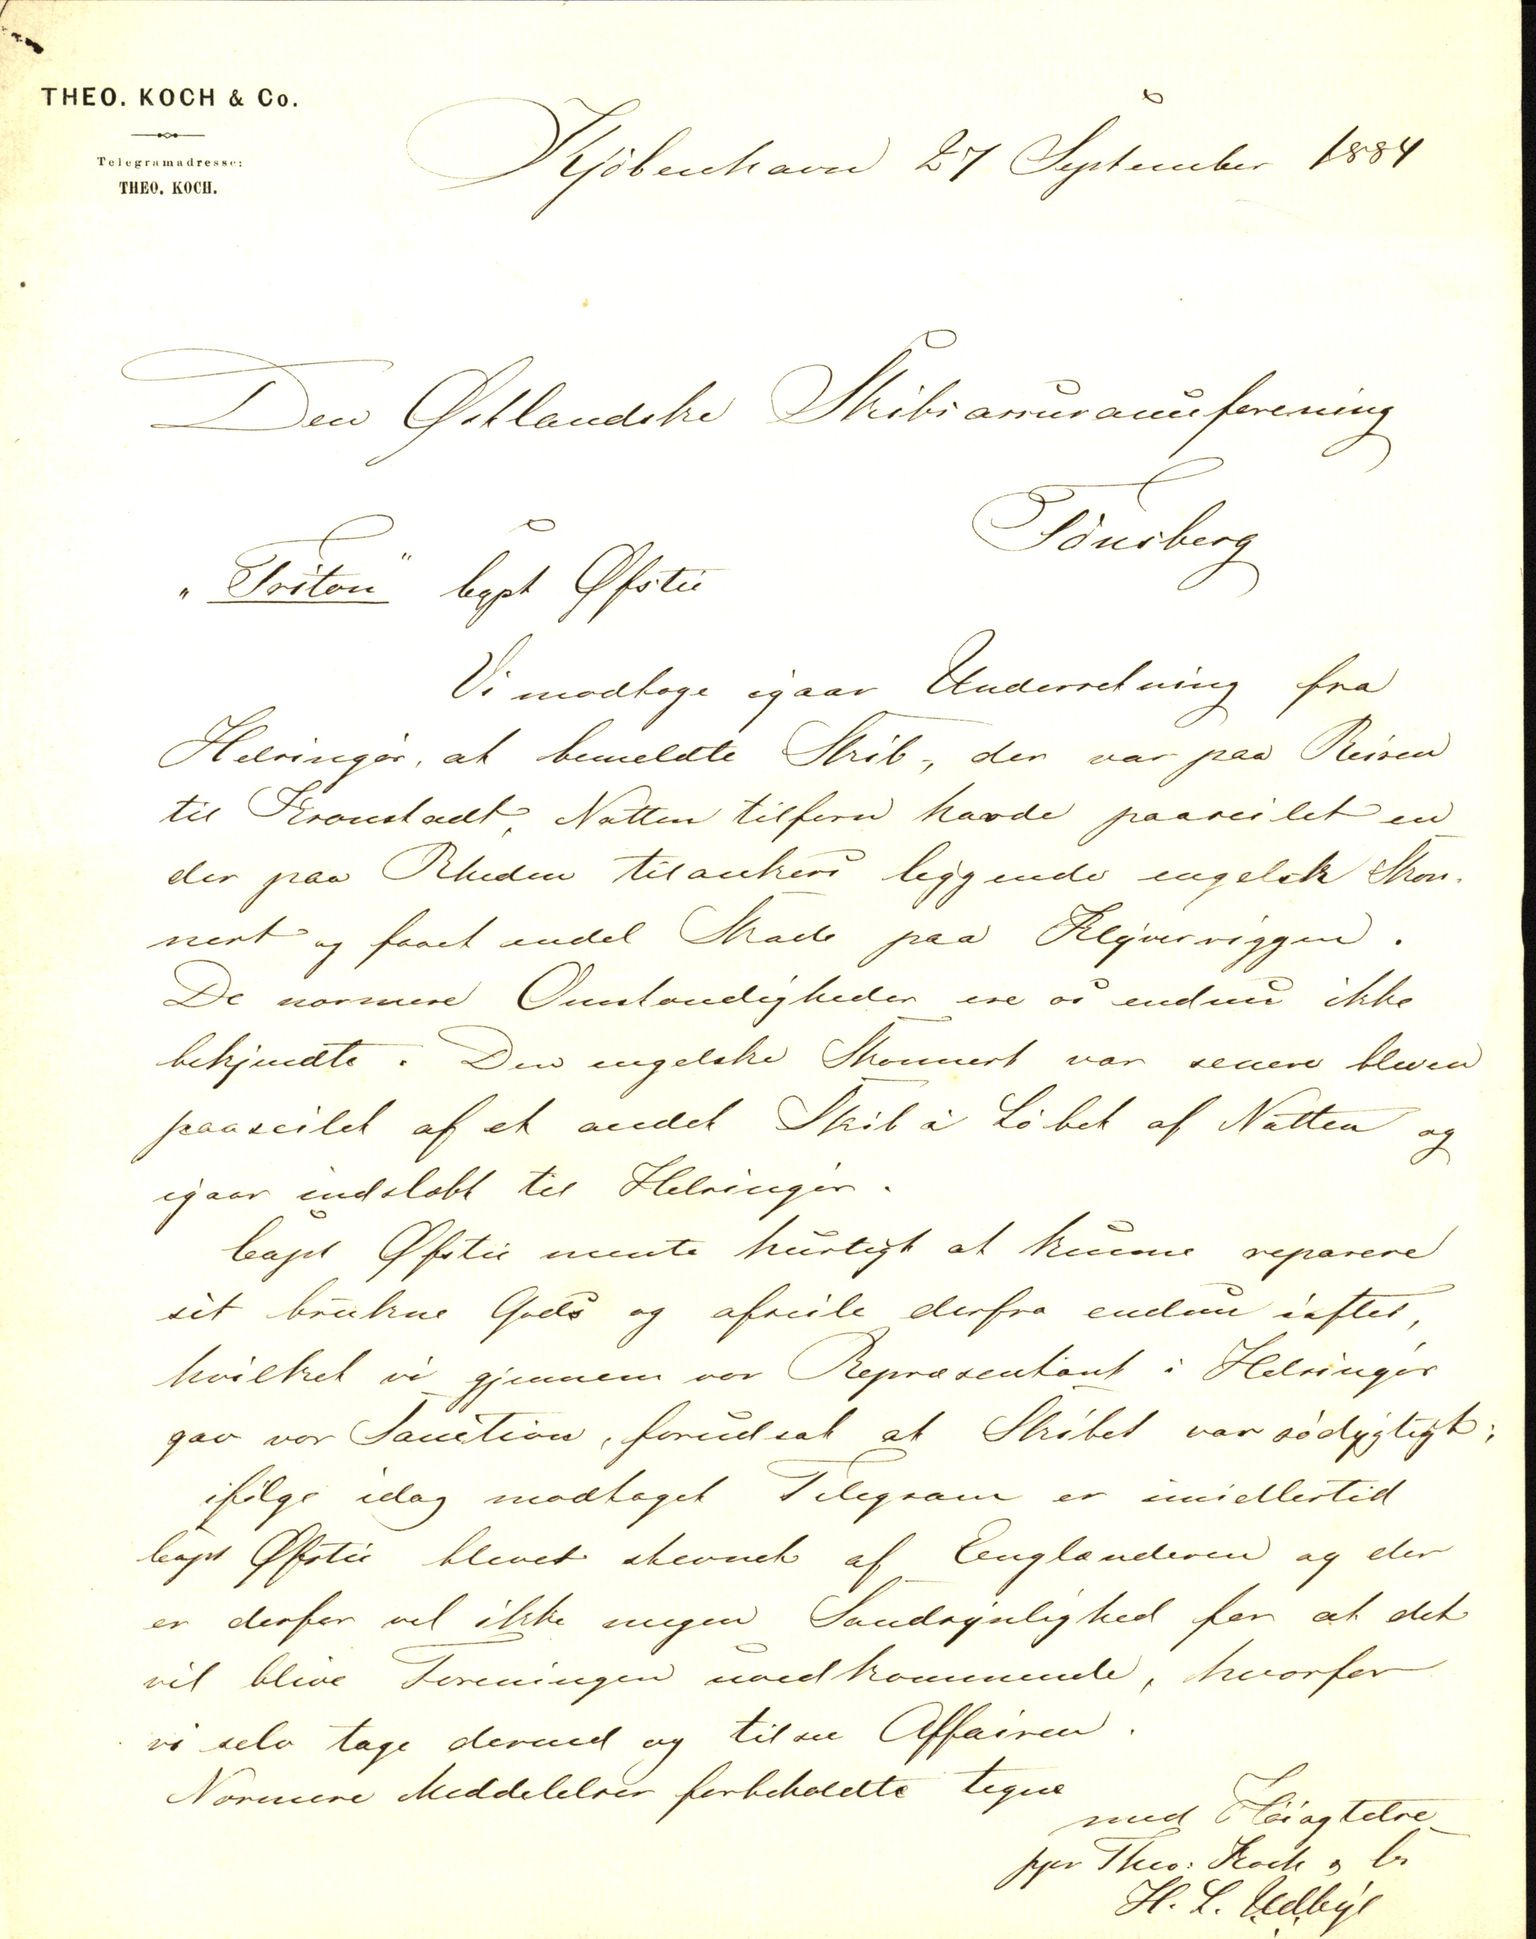 THEO. KOCH & Co.
Telegramadresse:
THEO. KOCH.
Kjöbenhavn 27 September 1884
Den Østlandske Skibsassuranceforening
Tönsberg
"Triton" Capt Øfstie
Vi modtoge igaar Underretning fra
Helsingör, at bemeldte Skib, der var paa Reisen
til Kronstadt, Natten tilforn havde paaseilet en
der paa Rheden tilankers liggende engelsk Skon-
nert og faaet endel Skade paa Klyverriggen.
De nærmere Omstændigheder ere os endnu ikke
bekjendte. Den engelske Skonnert var senere bleven
paaseilet af et andet Skib i Löbet af Natten og
igaar indslæbt til Helsingör.
Capt Øfstie mente hurtigt at kunne reparere
sit brukne Gods og afseile derfra endnu iaftes,
hvilket vi gjennem vor Repræsentant i Helsingör
gav vor Sanction, forudsat at Skibet var södygtigt;
ifölge idag modtaget Telegram er imidlertid
Capt Øfstie blevet stevnet af Englænderen og der
er derfor vel ikke megen Sandsynlighed for at det
vil blive Foreningen uvedkommende, hvorfor
vi selv tage derned og tilse Affairen.
Nærmere Meddelelser forbeholdte tegne
med Höiagtelse
ppr Theo: Koch & Co
H. L.